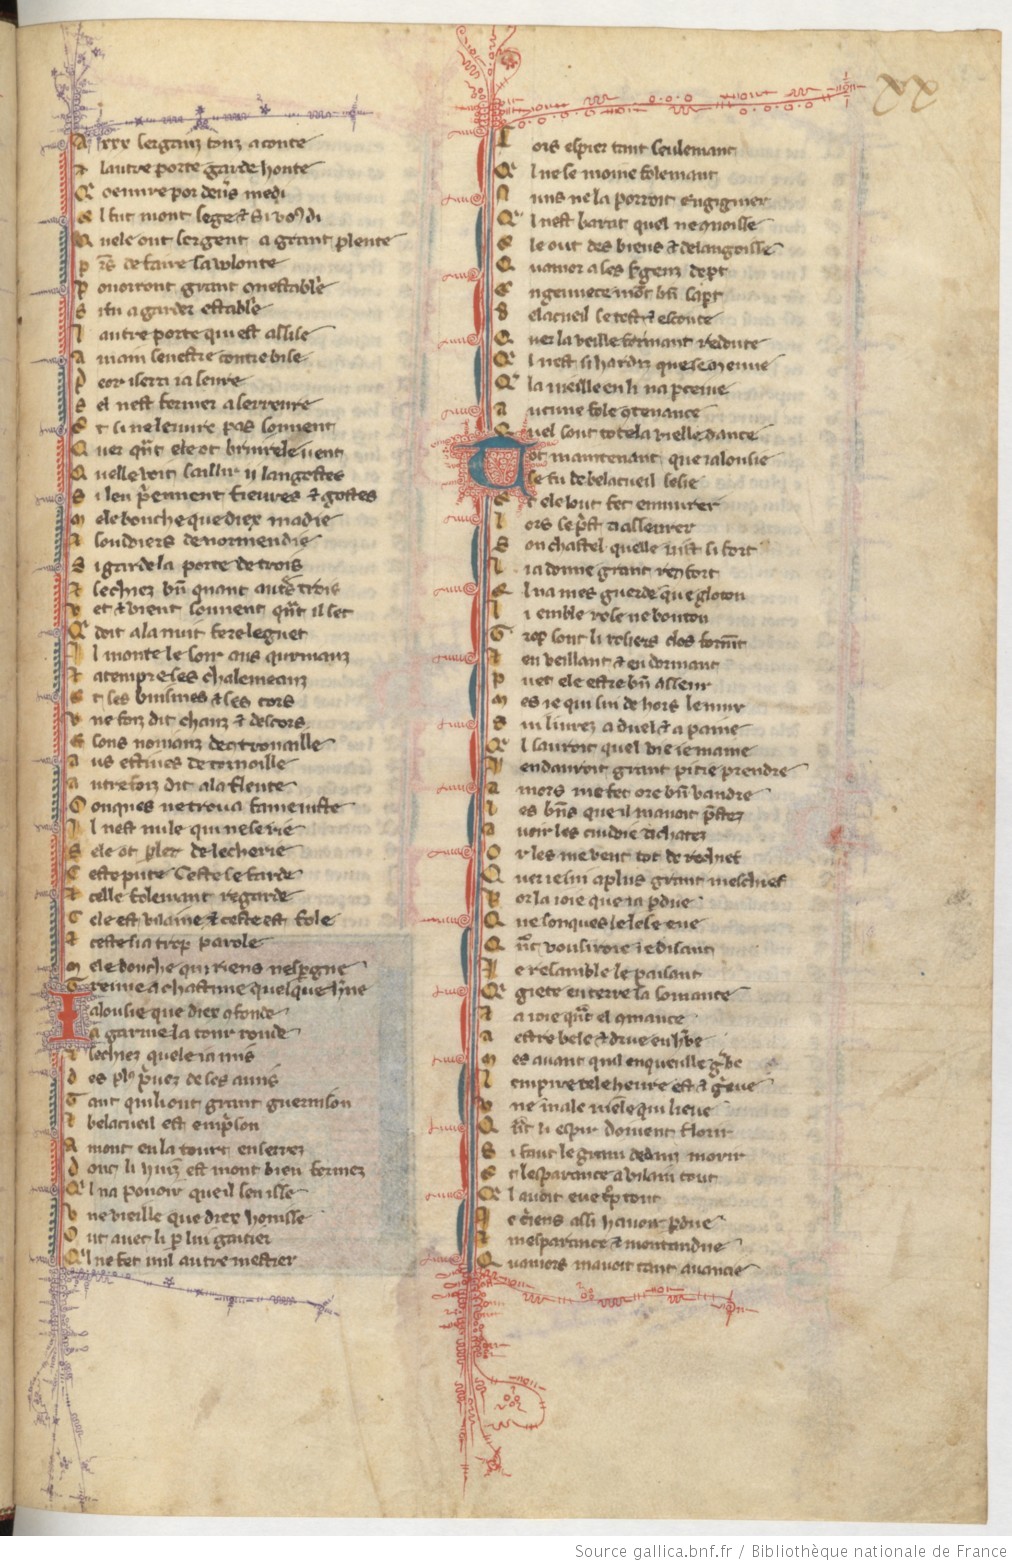 xx
A xxx serganz touz a conte
A lautre porte garde honte
Q oeuvre por devers medi
E l fut mout sege et si vos di
Q uele out sergent a grant plente
p rs de faire sa volonte
P oour rout grant connestablie
S i fu a garder establie
L autre porte qui est assise
A main senestre contre bise
P eor i sera ia seure
S el nest fermee a serreure
E t si ne leuvre pas souvent
Q uer quant ele ot bruire le vent
O u elle voit saillir ii langostes
S i len prennent fievres et gostes
M ale bouche que diex maudie
A soudoiers de normendie
S i garde la porte detrois
E t sechiez bien quant autres trois
V et et vient souvent quant il set
Q doit a la nuit fere le guet
I l monte le soir aus querniaux
A tempre ses chalemeaux
E t ses buisines et ses cors
V ne foiz dit chanz et descors
E t sons noviaux de controvaille
A us estives de cornaille
A utre foiz dit a la fleute
C onques ne trova fame iuste
I l nest nule qui ne se rie
S ele ot parler de lecherie
C este pute ceste se farde
E t celle folemant regarde
C ele est vilaine et ceste est fole
E t ceste ia trop parole
M ale bouche qui riens nespergne
T reuve a chascune quelque hergne
I alousie que diex confonde
A garnie la tour ronde
E t sechiez quele ia mis
D es plus privez de ses amis
T ant quil i out grant guernison
E t belacueil est en prison
A mont en la tourt enserrez
D ont li huiz est mout bien fermez
Q l na pouoir que il sen isse
V ne vieille que diex honisse
O ut avec li por lui gaitier
Q l ne fet nul autre mestier
F ors espier tant seulemant
Q l ne se moine folemant
N uns ne la porroit engignier
Q l nest barat quel ne quoisse
E le out des biens et de langoisse
Q uamor a ses sergenz depart
E n gennece mout bien sa part
B elacueil se test et escoute
Q uer la veille formant redoute
Q l nest si hardiz que se meuve
Q la vieille en li naperceive
A ucune fole contenance
Q uel sout tote la vielle dance
T ot maintenant que ialousie
S e fu de belacueil sesie
E t ele lout fet emmurer
L ors se prist a asseurer
S on chastel quelle vist si fort
L i a donne grant renfort
E l na mes guerde que gloton
L i emble rose ne bouton
T rop sont li rosiers clos forment
E t en veillant et en dormant
P uet ele estre bien asseur
M es ie qui sui de hors le mur
S ui livrez a duel et a paine
Q l sauroit quel vie ie maine
I l en dauroit grant pitie prendre
A mors me fet ore bien vandre
L es biens que il mavoit prestez
A voir les cuidoie achatez
O r les me vent tot de rechief
Q uer ie sui a plus grant meschief
P or la ioie que iai perdue
Q ue sonques ie ne leusse eue
Q uoi vous iroie ie disant
I e resamble le paisant
Q giete en terre sa somance
E t a ioie quant el commance
A estre bele et drue en herbe
M es avant quil en queulle gerbe
L empire tele heure est et grieve
V ne male niele qui lieve
Q nt li espi doivent florir
S i faut le grain dedanz morir
E t lesparance a vilain tout
Q l avoit eue trop tost
I e criens ausi avoir perdue
E t mesparance et mon tandue
Q uamors mavoit tant avancie
Source gallica.bnf.fr / Bibliothèque nationale de France